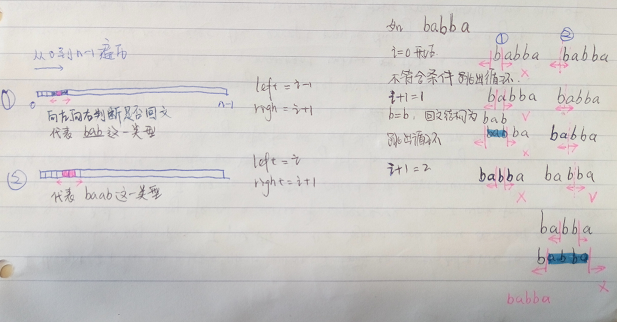 从0到n-1遍历
①
0
n-1
left = i-1
right = i+1
向左向右判断是否回文
代表 bab 这一类型
②
left = i
right = i+1
代表 baab 这一类型
如 babba
① ②
i=0 开始
babba babba
不符合条件 跳出循环.
x
i+1=1
babba babba
b=b, 回文结构为
bab
v
x
babba babba
跳出循环
x
i+1=2
babba babba
x v
babba
babba
x
babba